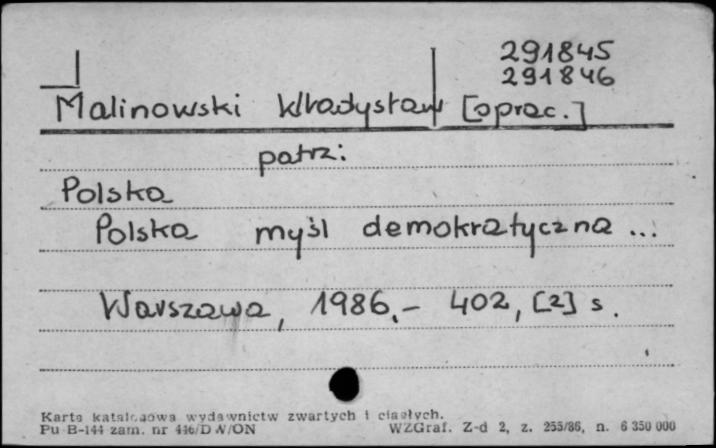 291845
291846
Malinowski Władysław [oprac.]
patrz:
Polska
Polska myśl demokratyczna ...
Warszawa, 1986.- 402, [2] s.
Karta katalogowa wydawnictw zwartych i ciągłych.
Pu B-144 zam. nr 446/D W/ON WZGraf. Z-d 2, z. 255/86, n. 6 350 000